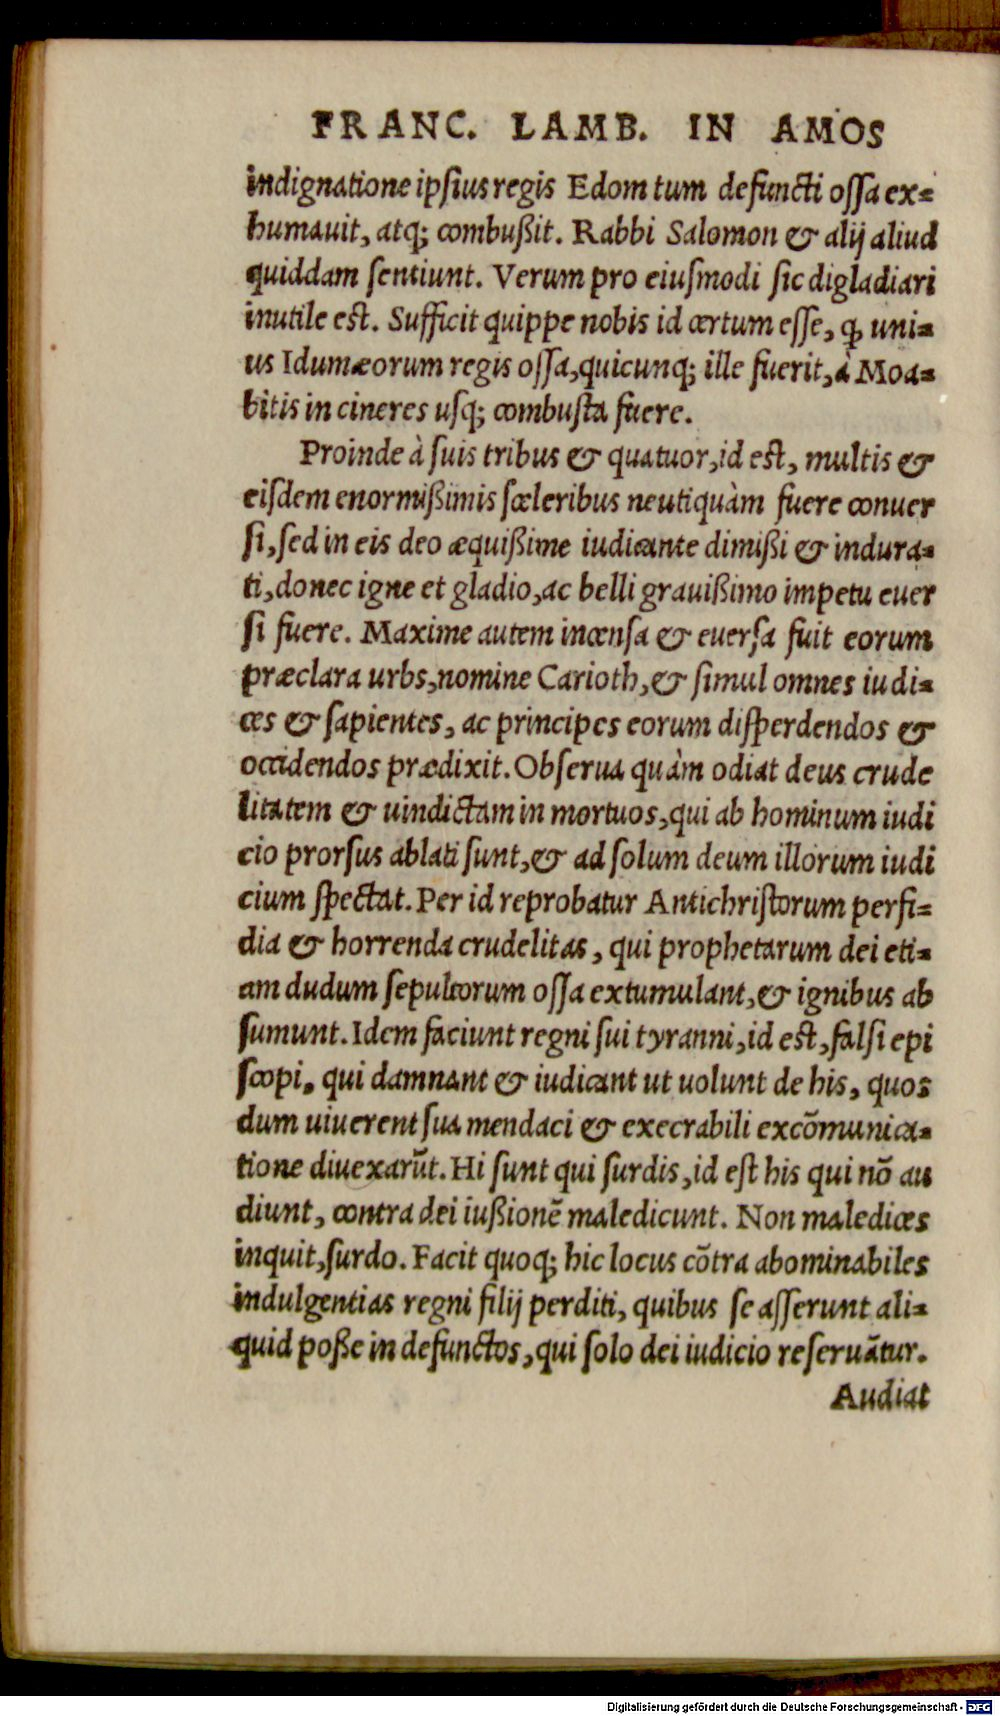 FRANC. LAMB. IN AMOS
indignatione ipſius regis Edom tum defuncti oſſa ex-
humauit, atq; combußit. Rabbi Salomon & alij aliud
quiddam ſentiunt. Verum pro eiuſmodi ſic digladiari
inutile eſt. Sufficit quippe nobis id certum eſſe, ꝙ uni-
us Idumæorum regis oſſa, quicunq; ille fuerit, à Moa-
bitis in cineres uſq; combuſta fuere.
Proinde à ſuis tribus & quatuor, id eſt, multis &
eiſdem enormißimis ſceleribus neutiquàm fuere conuer
ſi, ſed in eis deo æquißime iudicante dimißi & indura-
ti, donec igne et gladio, ac belli grauißimo impetu euer
ſi fuere. Maxime autem incenſa & euerſa fuit eorum
præclara urbs, nomine Carioth, & ſimul omnes iudi-
ces & ſapientes, ac principes eorum diſperdendos &
occidendos prædixit. Obſerua quàm odiat deus crude
litatem & uindictam in mortuos, qui ab hominum iudi
cio prorſus ablati ſunt, & ad ſolum deum illorum iudi
cium ſpectat. Per id reprobatur Antichriſtorum perfi-
dia & horrenda crudelitas, qui prophetarum dei eti-
am dudum ſepultorum oſſa extumulant, & ignibus ab
ſumunt. Idem faciunt regni ſui tyranni, id eſt, falſi epi
ſcopi, qui damnant & iudicant ut uolunt de his, quos
dum uiuerent ſua mendaci & execrabili excõmunica-
tione diuexarũt. Hi ſunt qui ſurdis, id eſt his qui nõ au
diunt, contra dei iußionẽ maledicunt. Non maledices
inquit, ſurdo. Facit quoq; hic locus cõtra abominabiles
indulgentias regni filij perditi, quibus ſe aſſerunt ali-
quid poße in defunctos, qui ſolo dei iudicio reſeruãtur.
Audiat
Digitalisierung gefördert durch die Deutsche Forschungsgemeinschaft - DFG